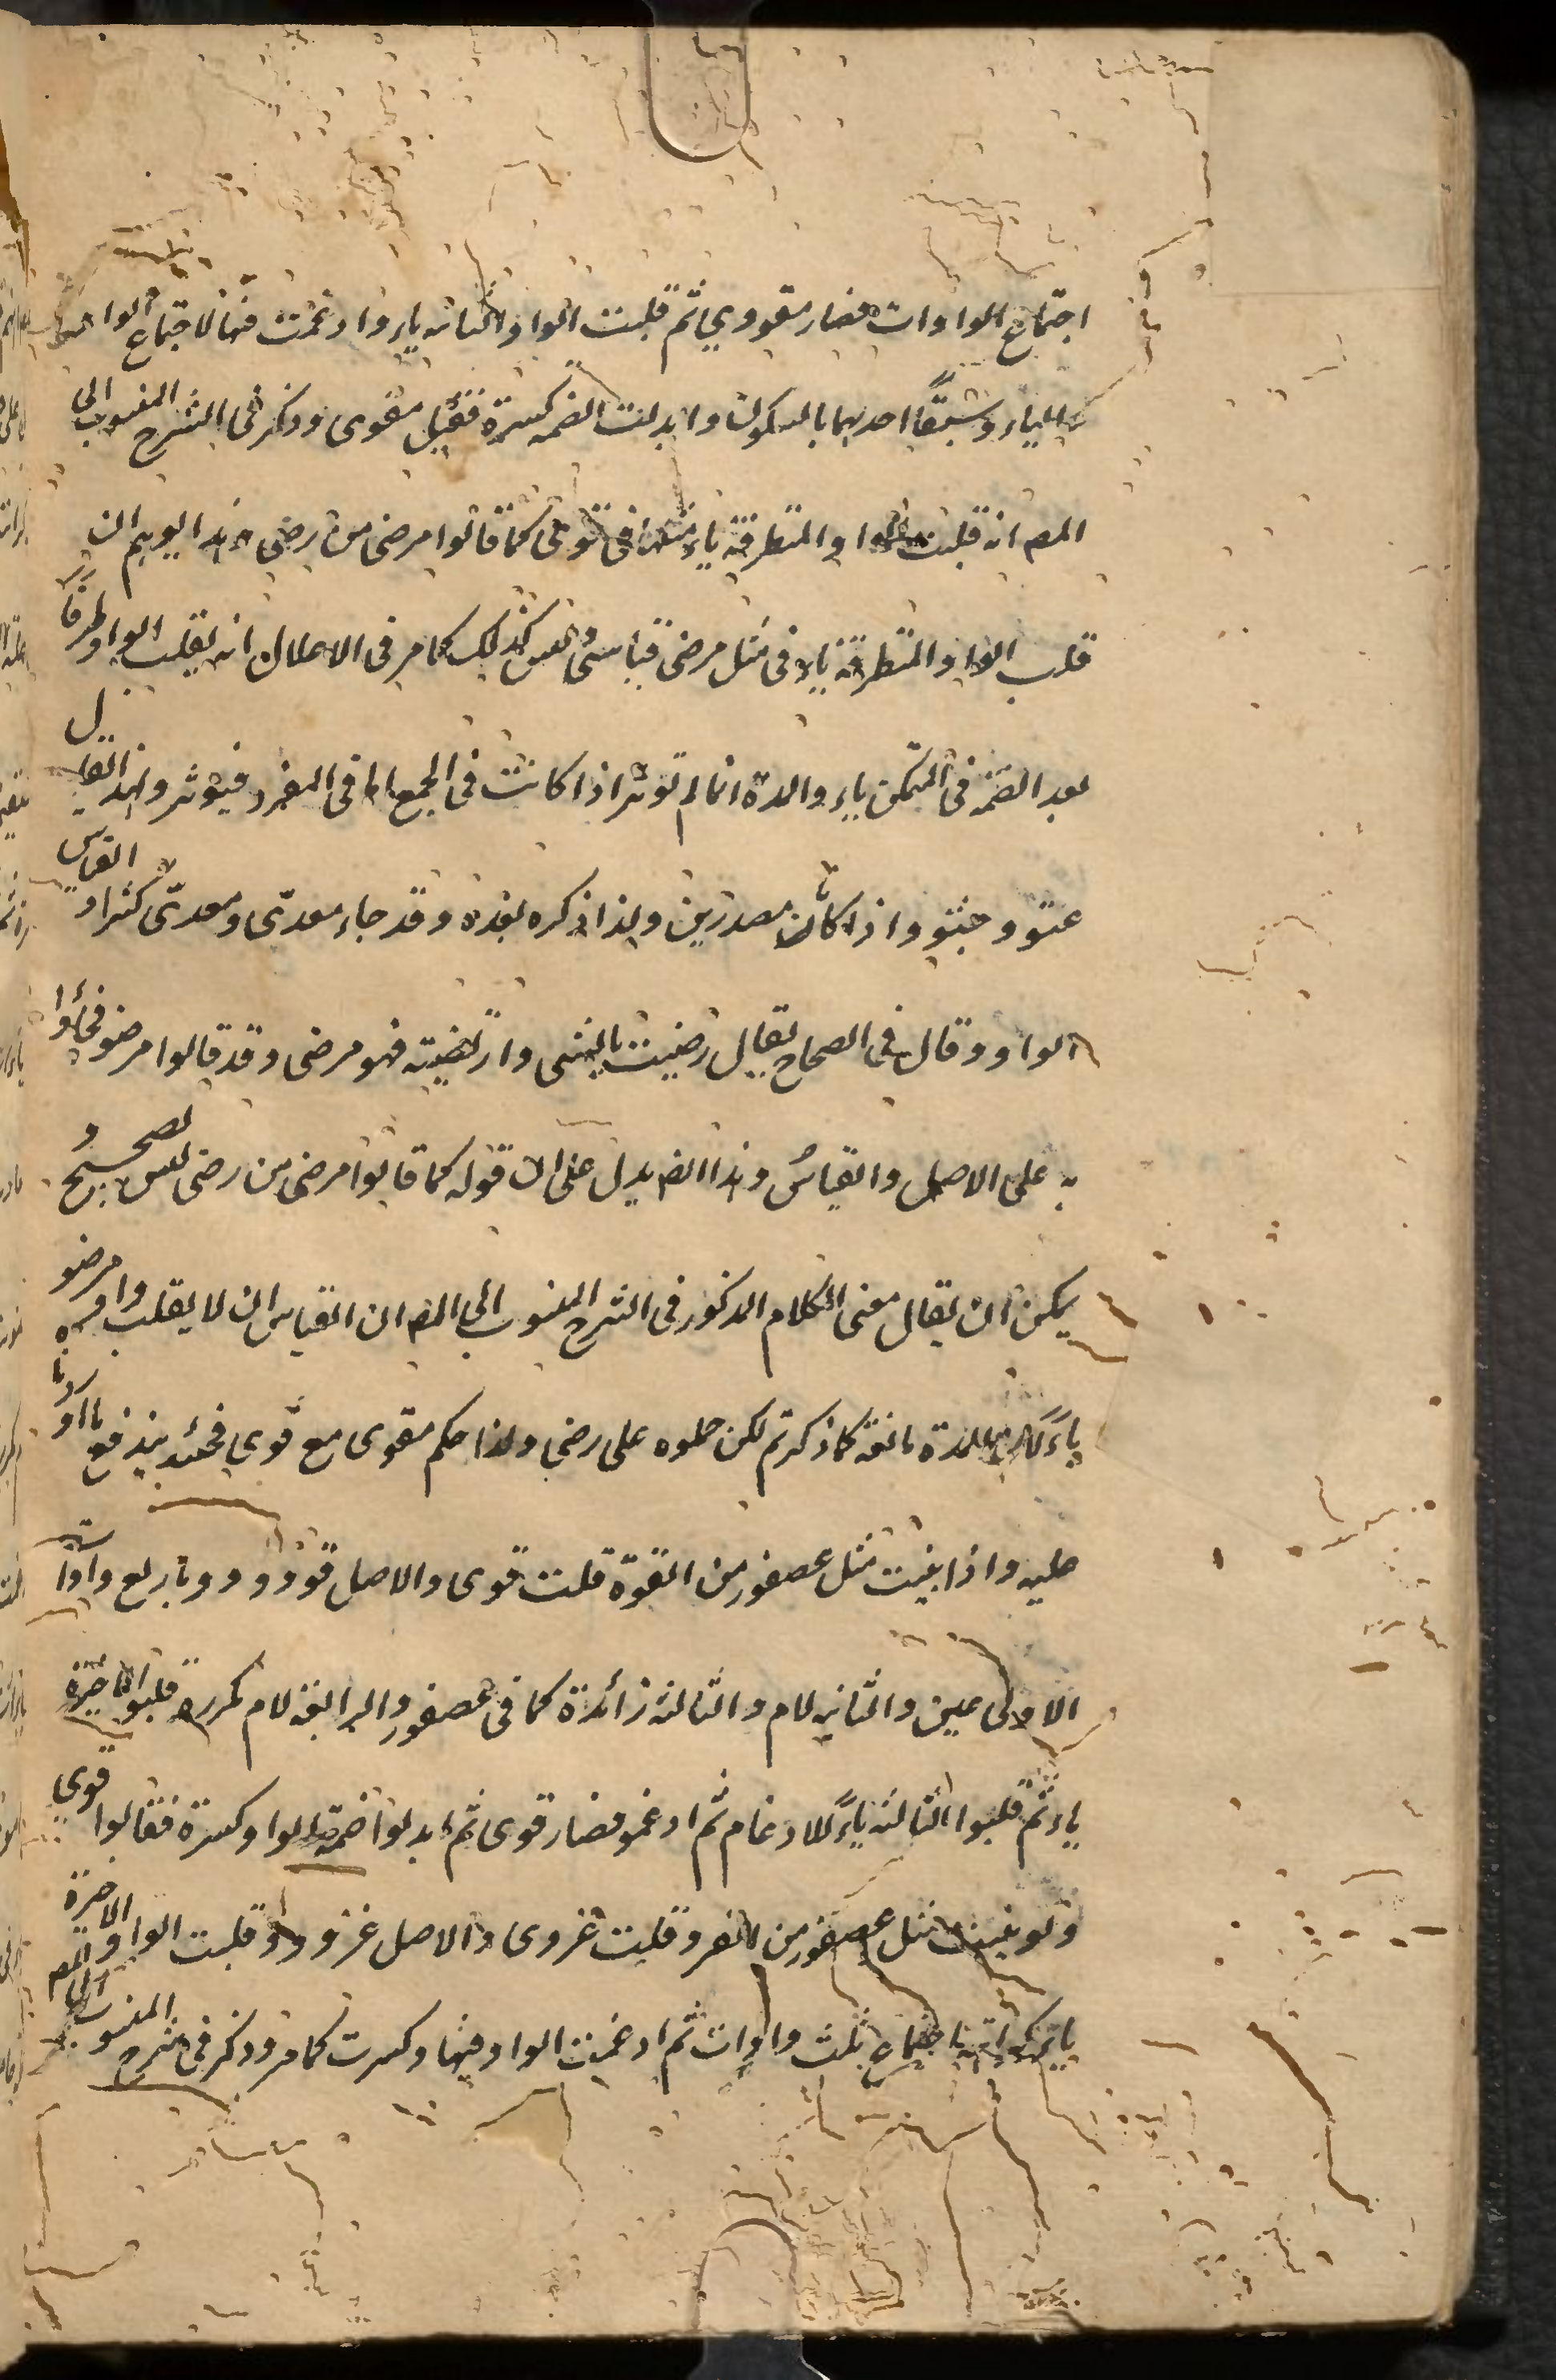 اجتماع الواوات فصار مقووي ثم قلبت الواو الثانيه ياء وادغمت فيها لاجتماع الواو
والياء وسبق احديهما بالسكون وابدلت الضمه كسرة فقيل مقوى وذكر فى الشرح المنسوب الى
المص انه قلبت الواو المتطرفة ياء كما قالوا مرضى من رضى وهذا يوهم ان
قلب الواو المتطرفة ياء فى مثل مرضى قياسى وليس كذلك كما مر فى الاعلال انه يقلب الواو طرفا
بعد الضمة فى المتمكن ياء والمدة انما لم توثر اذا كانت فى الجمع اما فى المفرد فيوثر ولهذا يقال
عتو وجثو اذا كانا مصدرين ولهذا ذكره بعده وقد جاء معدّى ومعدىّ كثيرا والقياس
الواو وقال فى الصحاح يقال رضيت بالشى وارتضيته فهو مرضى وقد قالوا مرضو فجاؤا
به على الاصل والقياس وهذا ايضا يدل على ان قوله كما قالوا مرضى من رضى ليس بصحيح و
يمكن ان يقال معنى الكلام المذكور فى الشرح المنسوب الى المص ان القياس ان لا يقلب واو مرضو
ياء لان المدة مانعة كما ذكرتم لكن حملوه على رضى ولذا حكم مقوى مع قوي فحينئذ يندفع ما اوردنا
عليه واذا بنيت مثل عصفور من القوة قلت قوى والاصل قوووو باربع واوات
الاولى عين والثانيه لام والثالثه زائدة كما فى عصفور والرابعة لام مكررة قلبوا الاخيرة
ياء ثم قلبوا الثالثه ياءً للادغام ثم ادغموا فصار قوى ثم ابدلوا ضمة الواو كسرة فقالوا قوي
ولو بنيت مثل عصفور من الغزو قلت غزوى والاصل غزووو قلبت الواو الاخيرة
ياء لاجتماع ثلث واوات ثم ادغمت الواو فيها وكسرت كما مر وذكر فى شرح المنسوب الى المص